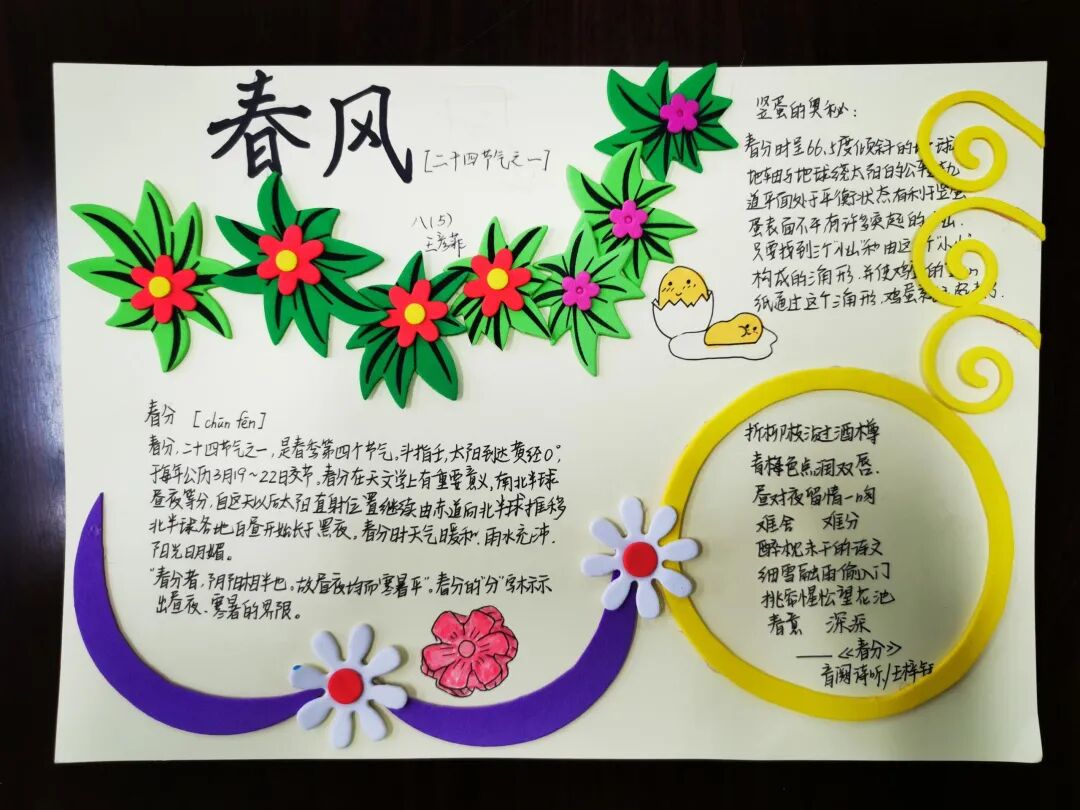 春风
[二十四节气之一]
八(5)
王彦菲
竖蛋的奥秘:
春分时呈66.5度倾斜的地球
地轴与地球绕太阳的公转轨
道平面处于平衡状态有利于竖蛋
蛋表面不平有许多突起的
只要找到三个小山和由这个小山
构成的三角形.并使鸡蛋的
线通过这个三角形.鸡蛋
春分 [chūn fēn]
春分,二十四节气之一,是春季第四个节气。斗指壬,太阳到达黄经0°;
于每年公历3月19~22日交节。春分在天文学上有重要意义,南北半球
昼夜等分,自这天以后太阳直射位置继续由赤道向北半球推移
北半球各地白昼开始长于黑夜。春分时天气暖和.雨水充沛.
阳光明媚。
"春分者,阴阳相半也。故昼夜均而寒暑平"。春分的"分"字标示
出昼夜、寒暑的界限。
折柳枝沾过酒樽
青梅色点润双唇.
昼对夜留情一吻
难舍 难分
醉枕未干的诗文
细雪融雨偷入门
挑帘惺忪望花池
春意 深深
——《春分》
音阙诗听/王梓钰